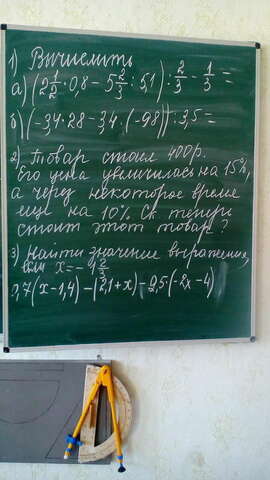 1) Вычислить
а) (2 1/2 · 0,8 − 5 2/3 : 5,1) · 2/3 − 1/3 =
б) (−3,4 · 2,8 − 3,4 : (−9,8)) : 3,5 =
2) Товар стоил 400 р.
Его цена увеличилась на 15%,
а через некоторое время
ещё на 10%. Ск. теперь
стоит этот товар?
3) Найти значение выражения,
если x = −1 2/3
0,7(x − 1,4) − (2,1 + x) − 2,5 · (−2x − 4)